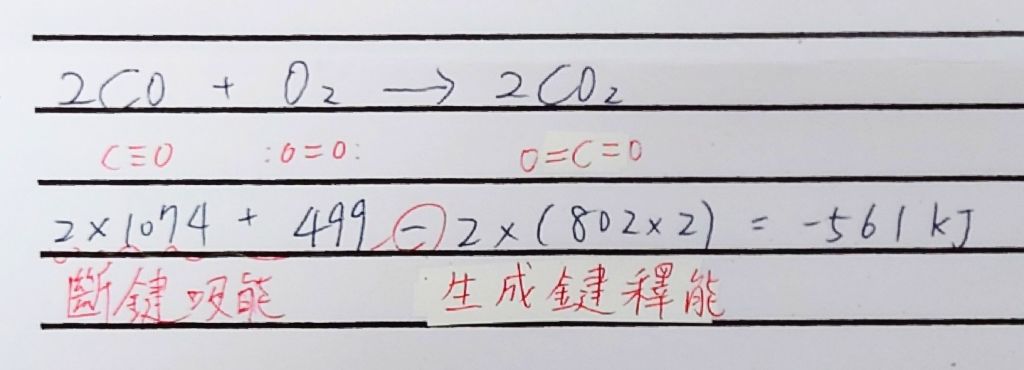 2CO + O₂ → 2CO₂
C≡O :O=O: O=C=O
2×1074 + 499 - 2×(802×2) = -561 kJ
斷鍵吸能 生成鍵釋能